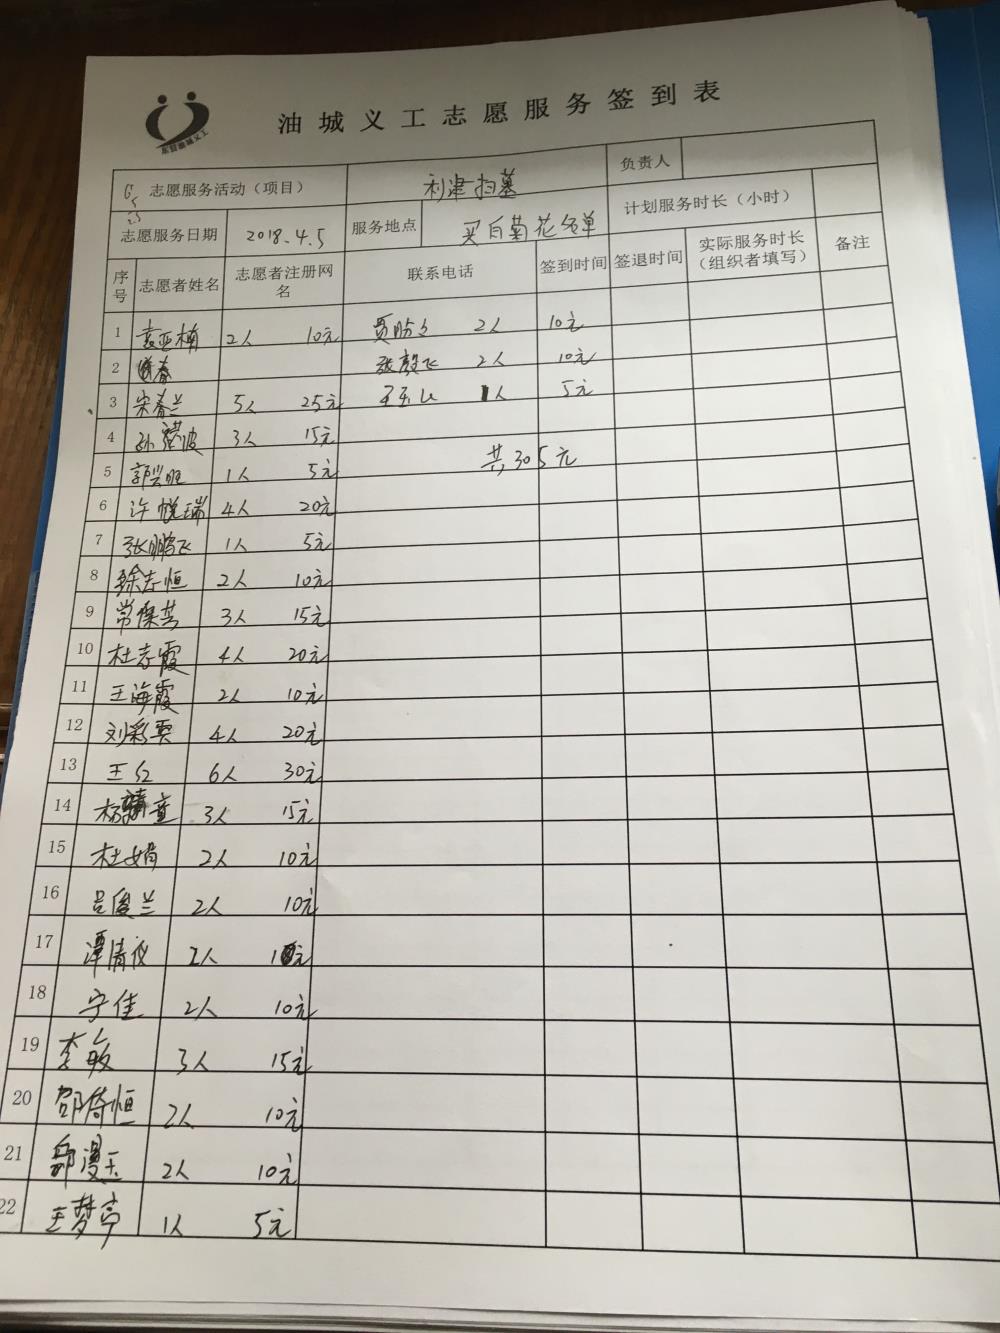 东营油城义工
油城义工志愿服务签到表
志愿服务活动（项目） 利津扫墓 负责人
志愿服务日期 2018.4.5 服务地点 买白菊花名单 计划服务时长（小时）
序号 志愿者姓名 志愿者注册网名 联系电话 签到时间 签退时间 实际服务时长（组织者填写） 备注
1 袁亚楠 2人 10元 贾 2人 10元
2 张毅飞 2人 10元
3 宋春兰 5人 25元 王玉 1人 5元
4 孙 波 3人 15元
5 郭兴旺 1人 5元 共305元
6 许悦瑞 4人 20元
7 张鹏飞 1人 5元
8 徐志恒 2人 10元
9 常保芸 3人 15元
10 杜志霞 4人 20元
11 王海霞 2人 10元
12 刘彩霞 4人 20元
13 王红 6人 30元
14 杨 童 3人 15元
15 杜娟 2人 10元
16 吕俊兰 2人 10元
17 谭清 2人 10元
18 宁佳 2人 10元
19 李敏 3人 15元
20 邵倚恒 2人 10元
21 漫玉 2人 10元
22 王梦亭 1人 5元